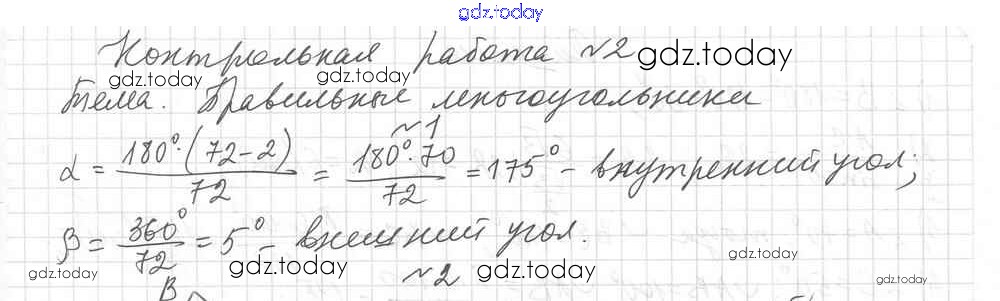 gdz.today
Контрольная работа №2 gdz.today
gdz.today gdz.today
Тема. Правильные многоугольники
№1
α = 180°·(72-2)/72 = 180°·70/72 = 175° - внутренний угол;
β = 360°/72 = 5° - внешний угол.
gdz.today gdz.today gdz.today gdz.today
№2
B